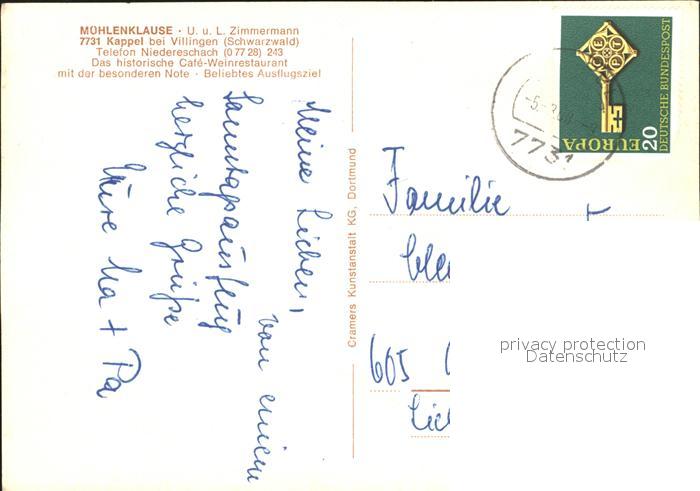 MÜHLENKLAUSE · U. u. L. Zimmermann
7731 Kappel bei Villingen (Schwarzwald)
Telefon Niedereschach (0 77 28) 243
Das historische Café-Weinrestaurant
mit der besonderen Note · Beliebtes Ausflugsziel
Meine Lieben,
von einem
Samstagsausflug
herzliche Grüße
Eure Ma + Pa
Cramers Kunstanstalt KG, Dortmund
Familie
605
7731
EUROPA
20
DEUTSCHE BUNDESPOST
privacy protection
Datenschutz